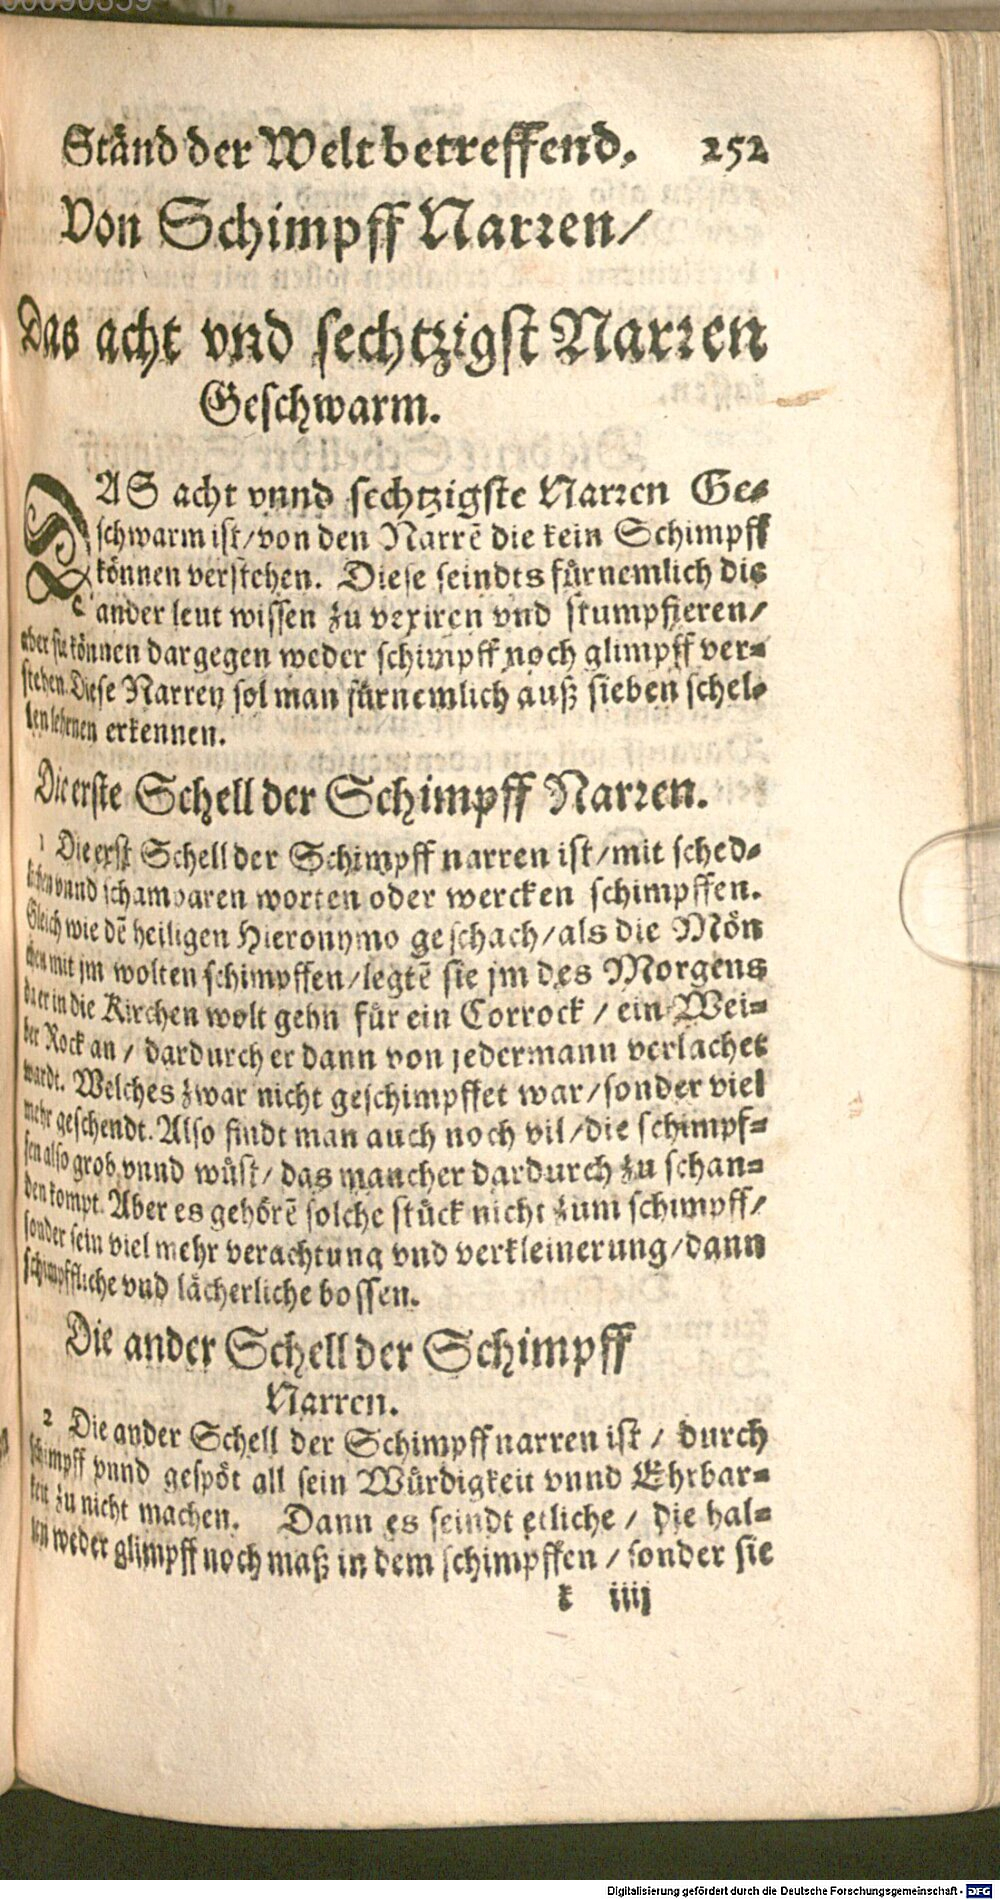 00090359
Ständ der Welt betreffend. 252
Von Schimpff Narren/
Das acht vnd sechtzigst Narren
Geschwarm.
DAS acht vnnd sechtzigste Narren Ge-
schwarm ist/ von den Narrē die kein Schimpff
können verstehen. Diese seindts fürnemlich die
ander leut wissen zu vexiren vnd stumpfieren/
aber sie können dargegen weder schimpff noch glimpff ver-
stehen. Diese Narren sol man fürnemlich auß sieben schel-
len lehrnen erkennen.
Die erste Schell der Schimpff Narren.
1 Die erst Schell der Schimpff narren ist/ mit sched-
lichen vnnd schambaren worten oder wercken schimpffen.
Gleich wie dē heiligen Hieronymo geschach/ als die Mön
chen mit jm wolten schimpffen/ legtē sie jm des Morgens
da er in die Kirchen wolt gehn für ein Corrock / ein Wei-
ber Rock an / dardurch er dann von jedermann verlachet
wardt. Welches zwar nicht geschimpffet war/ sonder viel
mehr geschendt. Also findt man auch noch vil/ die schimpf-
fen also grob vnnd wüst/ das mancher dardurch zu schan-
den kompt. Aber es gehörē solche stück nicht zum schimpff/
sonder sein viel mehr verachtung vnd verkleinerung/ dann
schimpffliche vnd lächerliche bossen.
Die ander Schell der Schimpff
Narren.
2 Die ander Schell der Schimpff narren ist / durch
schimpff vnnd gespöt all sein Würdigkeit vnnd Ehrbar-
keit zu nicht machen. Dann es seindt etliche / die hal-
ten weder glimpff noch maß in dem schimpffen / sonder sie
k iiij
Digitalisierung gefördert durch die Deutsche Forschungsgemeinschaft - DFG